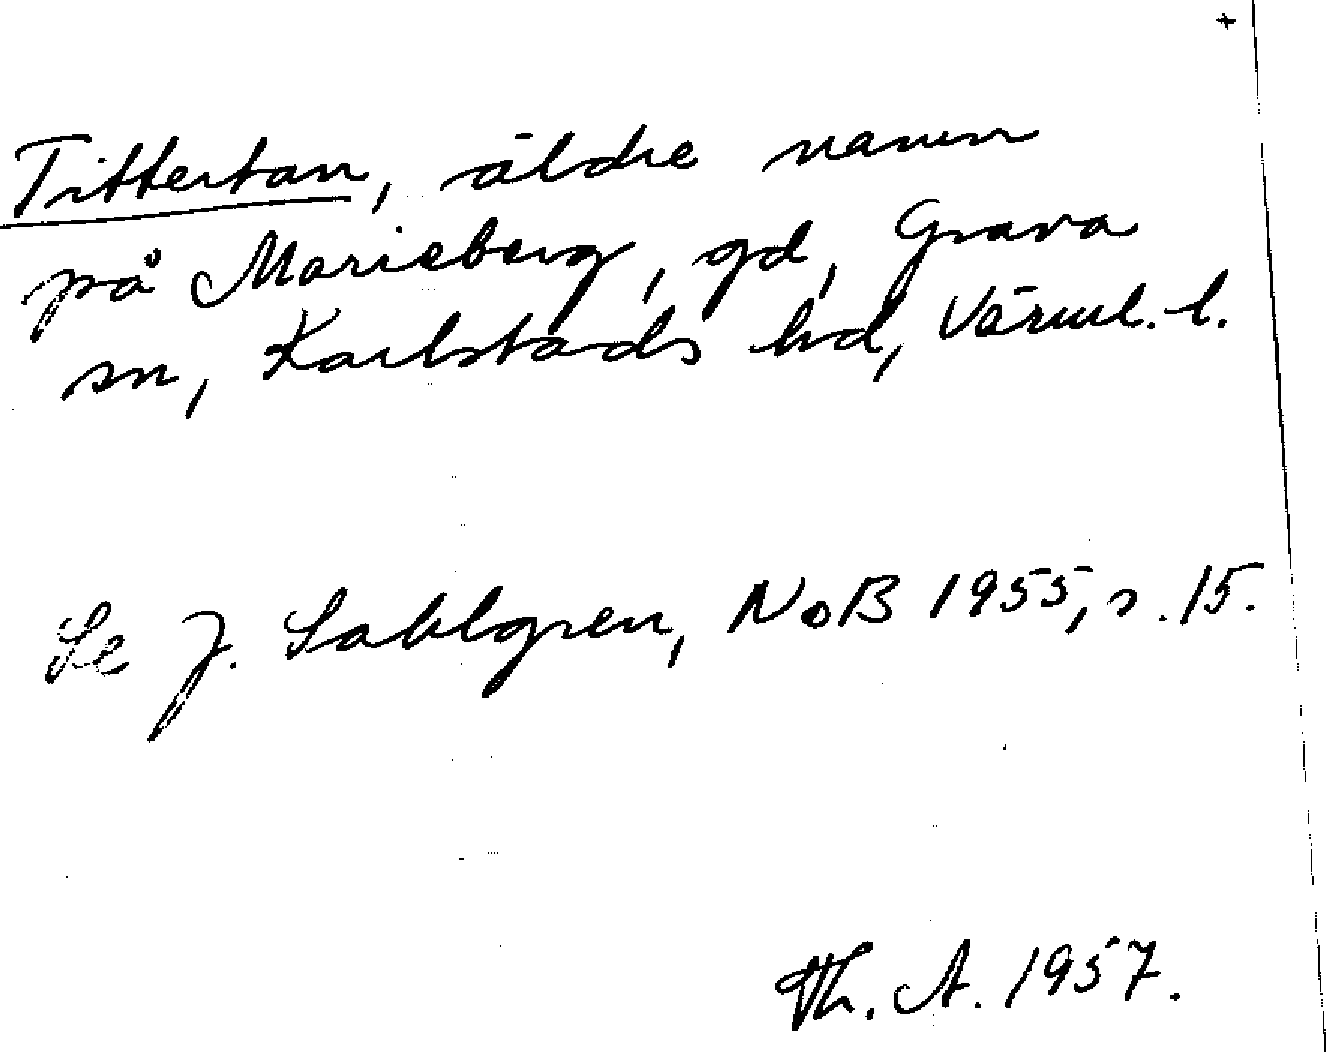 +
Tittertan, äldre namn
på Marieberg, gd, Grava
sn, Karlstads hd, Värml. l.
Se J. Sahlgren, NoB 1955, s. 15.
Th. A. 1957.